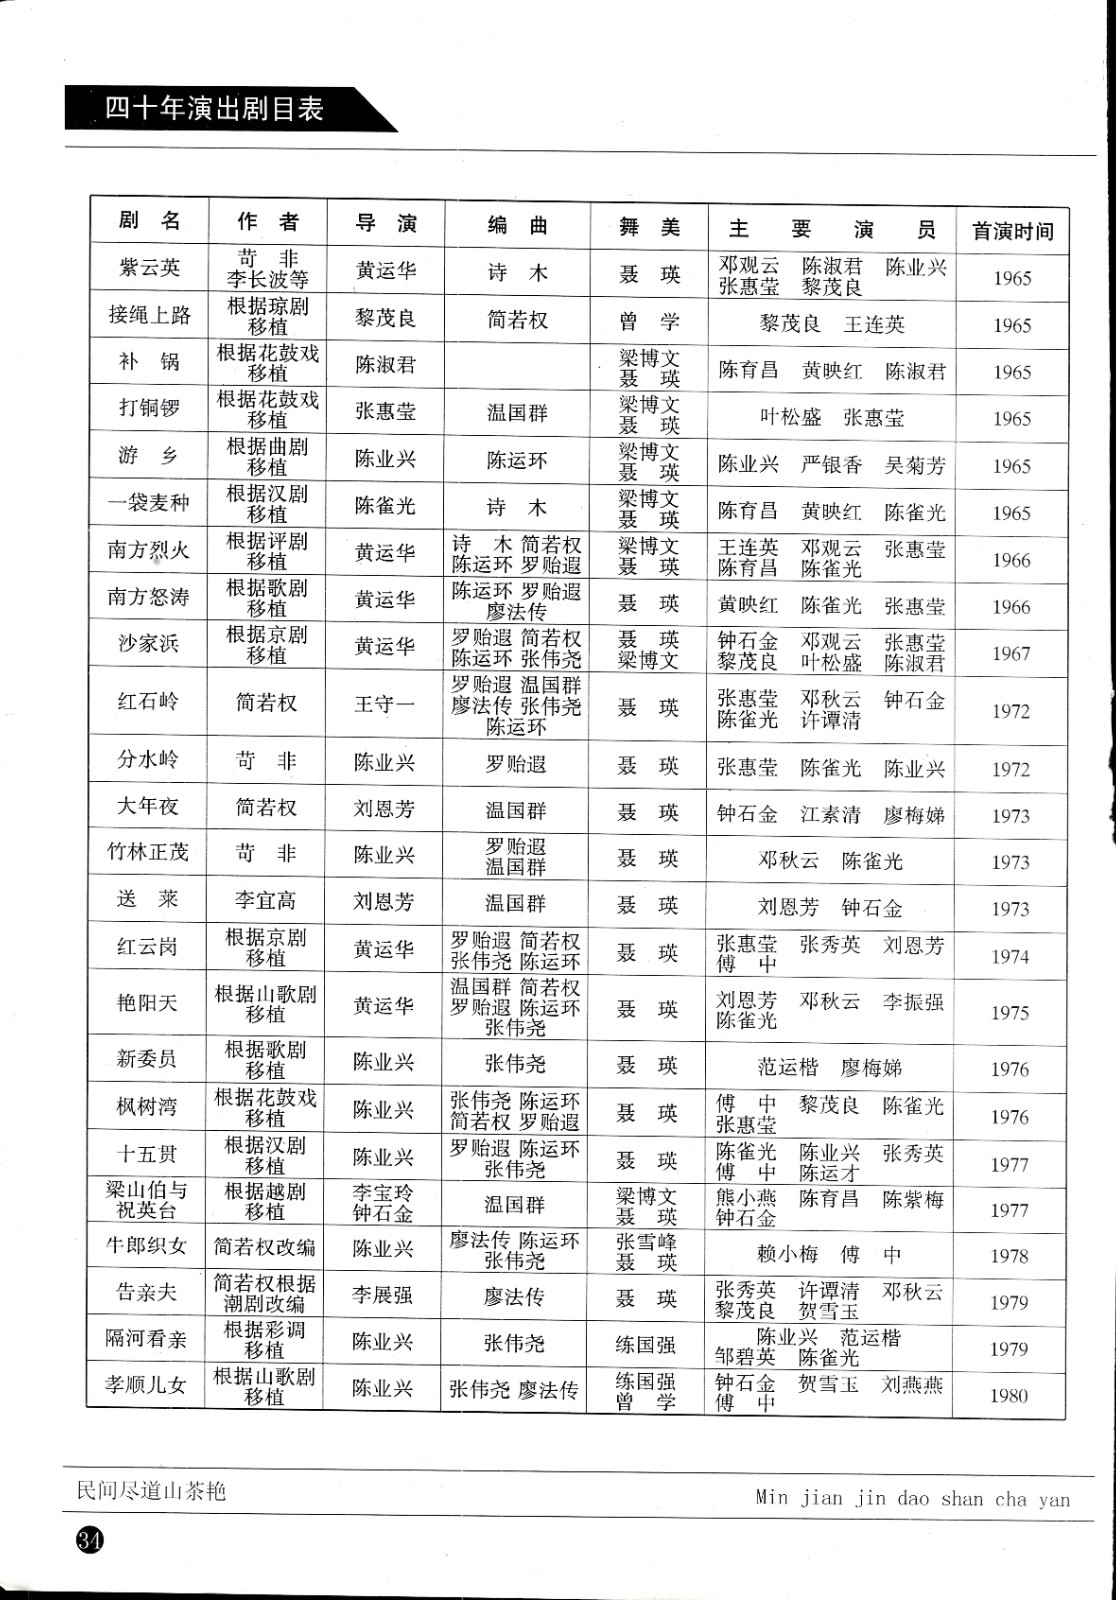 四十年演出剧目表
剧 名 作 者 导 演 编 曲 舞 美 主 要 演 员 首演时间
紫云英 苛 非 李长波等 黄运华 诗 木 聂 瑛 邓观云 陈淑君 陈业兴 张惠莹 黎茂良 1965
接绳上路 根据琼剧移植 黎茂良 简若权 曾 学 黎茂良 王连英 1965
补 锅 根据花鼓戏移植 陈淑君 梁博文 聂 瑛 陈育昌 黄映红 陈淑君 1965
打铜锣 根据花鼓戏移植 张惠莹 温国群 梁博文 聂 瑛 叶松盛 张惠莹 1965
游 乡 根据曲剧移植 陈业兴 陈运环 梁博文 聂 瑛 陈业兴 严银香 吴菊芳 1965
一袋麦种 根据汉剧移植 陈雀光 诗 木 梁博文 聂 瑛 陈育昌 黄映红 陈雀光 1965
南方烈火 根据评剧移植 黄运华 诗 木 简若权 陈运环 罗贻遐 梁博文 聂 瑛 王连英 邓观云 张惠莹 陈育昌 陈雀光 1966
南方怒涛 根据歌剧移植 黄运华 陈运环 罗贻遐 廖法传 聂 瑛 黄映红 陈雀光 张惠莹 1966
沙家浜 根据京剧移植 黄运华 罗贻遐 简若权 陈运环 张伟尧 聂 瑛 梁博文 钟石金 邓观云 张惠莹 黎茂良 叶松盛 陈淑君 1967
红石岭 简若权 王守一 罗贻遐 温国群 廖法传 张伟尧 陈运环 聂 瑛 张惠莹 邓秋云 钟石金 陈雀光 许谭清 1972
分水岭 苛 非 陈业兴 罗贻遐 聂 瑛 张惠莹 陈雀光 陈业兴 1972
大年夜 简若权 刘恩芳 温国群 聂 瑛 钟石金 江素清 廖梅娣 1973
竹林正茂 苛 非 陈业兴 罗贻遐 温国群 聂 瑛 邓秋云 陈雀光 1973
送 菜 李宜高 刘恩芳 温国群 聂 瑛 刘恩芳 钟石金 1973
红云岗 根据京剧移植 黄运华 罗贻遐 简若权 张伟尧 陈运环 聂 瑛 张惠莹 张秀英 刘恩芳 傅 中 1974
艳阳天 根据山歌剧移植 黄运华 温国群 简若权 罗贻遐 陈运环 张伟尧 聂 瑛 刘恩芳 邓秋云 李振强 陈雀光 1975
新委员 根据歌剧移植 陈业兴 张伟尧 聂 瑛 范运楷 廖梅娣 1976
枫树湾 根据花鼓戏移植 陈业兴 张伟尧 陈运环 简若权 罗贻遐 聂 瑛 傅 中 黎茂良 陈雀光 张惠莹 1976
十五贯 根据汉剧移植 陈业兴 罗贻遐 陈运环 张伟尧 聂 瑛 陈雀光 陈业兴 张秀英 傅 中 陈运才 1977
梁山伯与祝英台 根据越剧移植 李宝玲 钟石金 温国群 梁博文 聂 瑛 熊小燕 陈育昌 陈紫梅 钟石金 1977
牛郎织女 简若权改编 陈业兴 廖法传 陈运环 张伟尧 张雪峰 聂 瑛 赖小梅 傅 中 1978
告亲夫 简若权根据潮剧改编 李展强 廖法传 聂 瑛 张秀英 许谭清 邓秋云 黎茂良 贺雪玉 1979
隔河看亲 根据彩调移植 陈业兴 张伟尧 练国强 陈业兴 范运楷 邹碧英 陈雀光 1979
孝顺儿女 根据山歌剧移植 陈业兴 张伟尧 廖法传 练国强 曾 学 钟石金 贺雪玉 刘燕燕 傅 中 1980
民间尽道山茶艳
Min jian jin dao shan cha yan
34